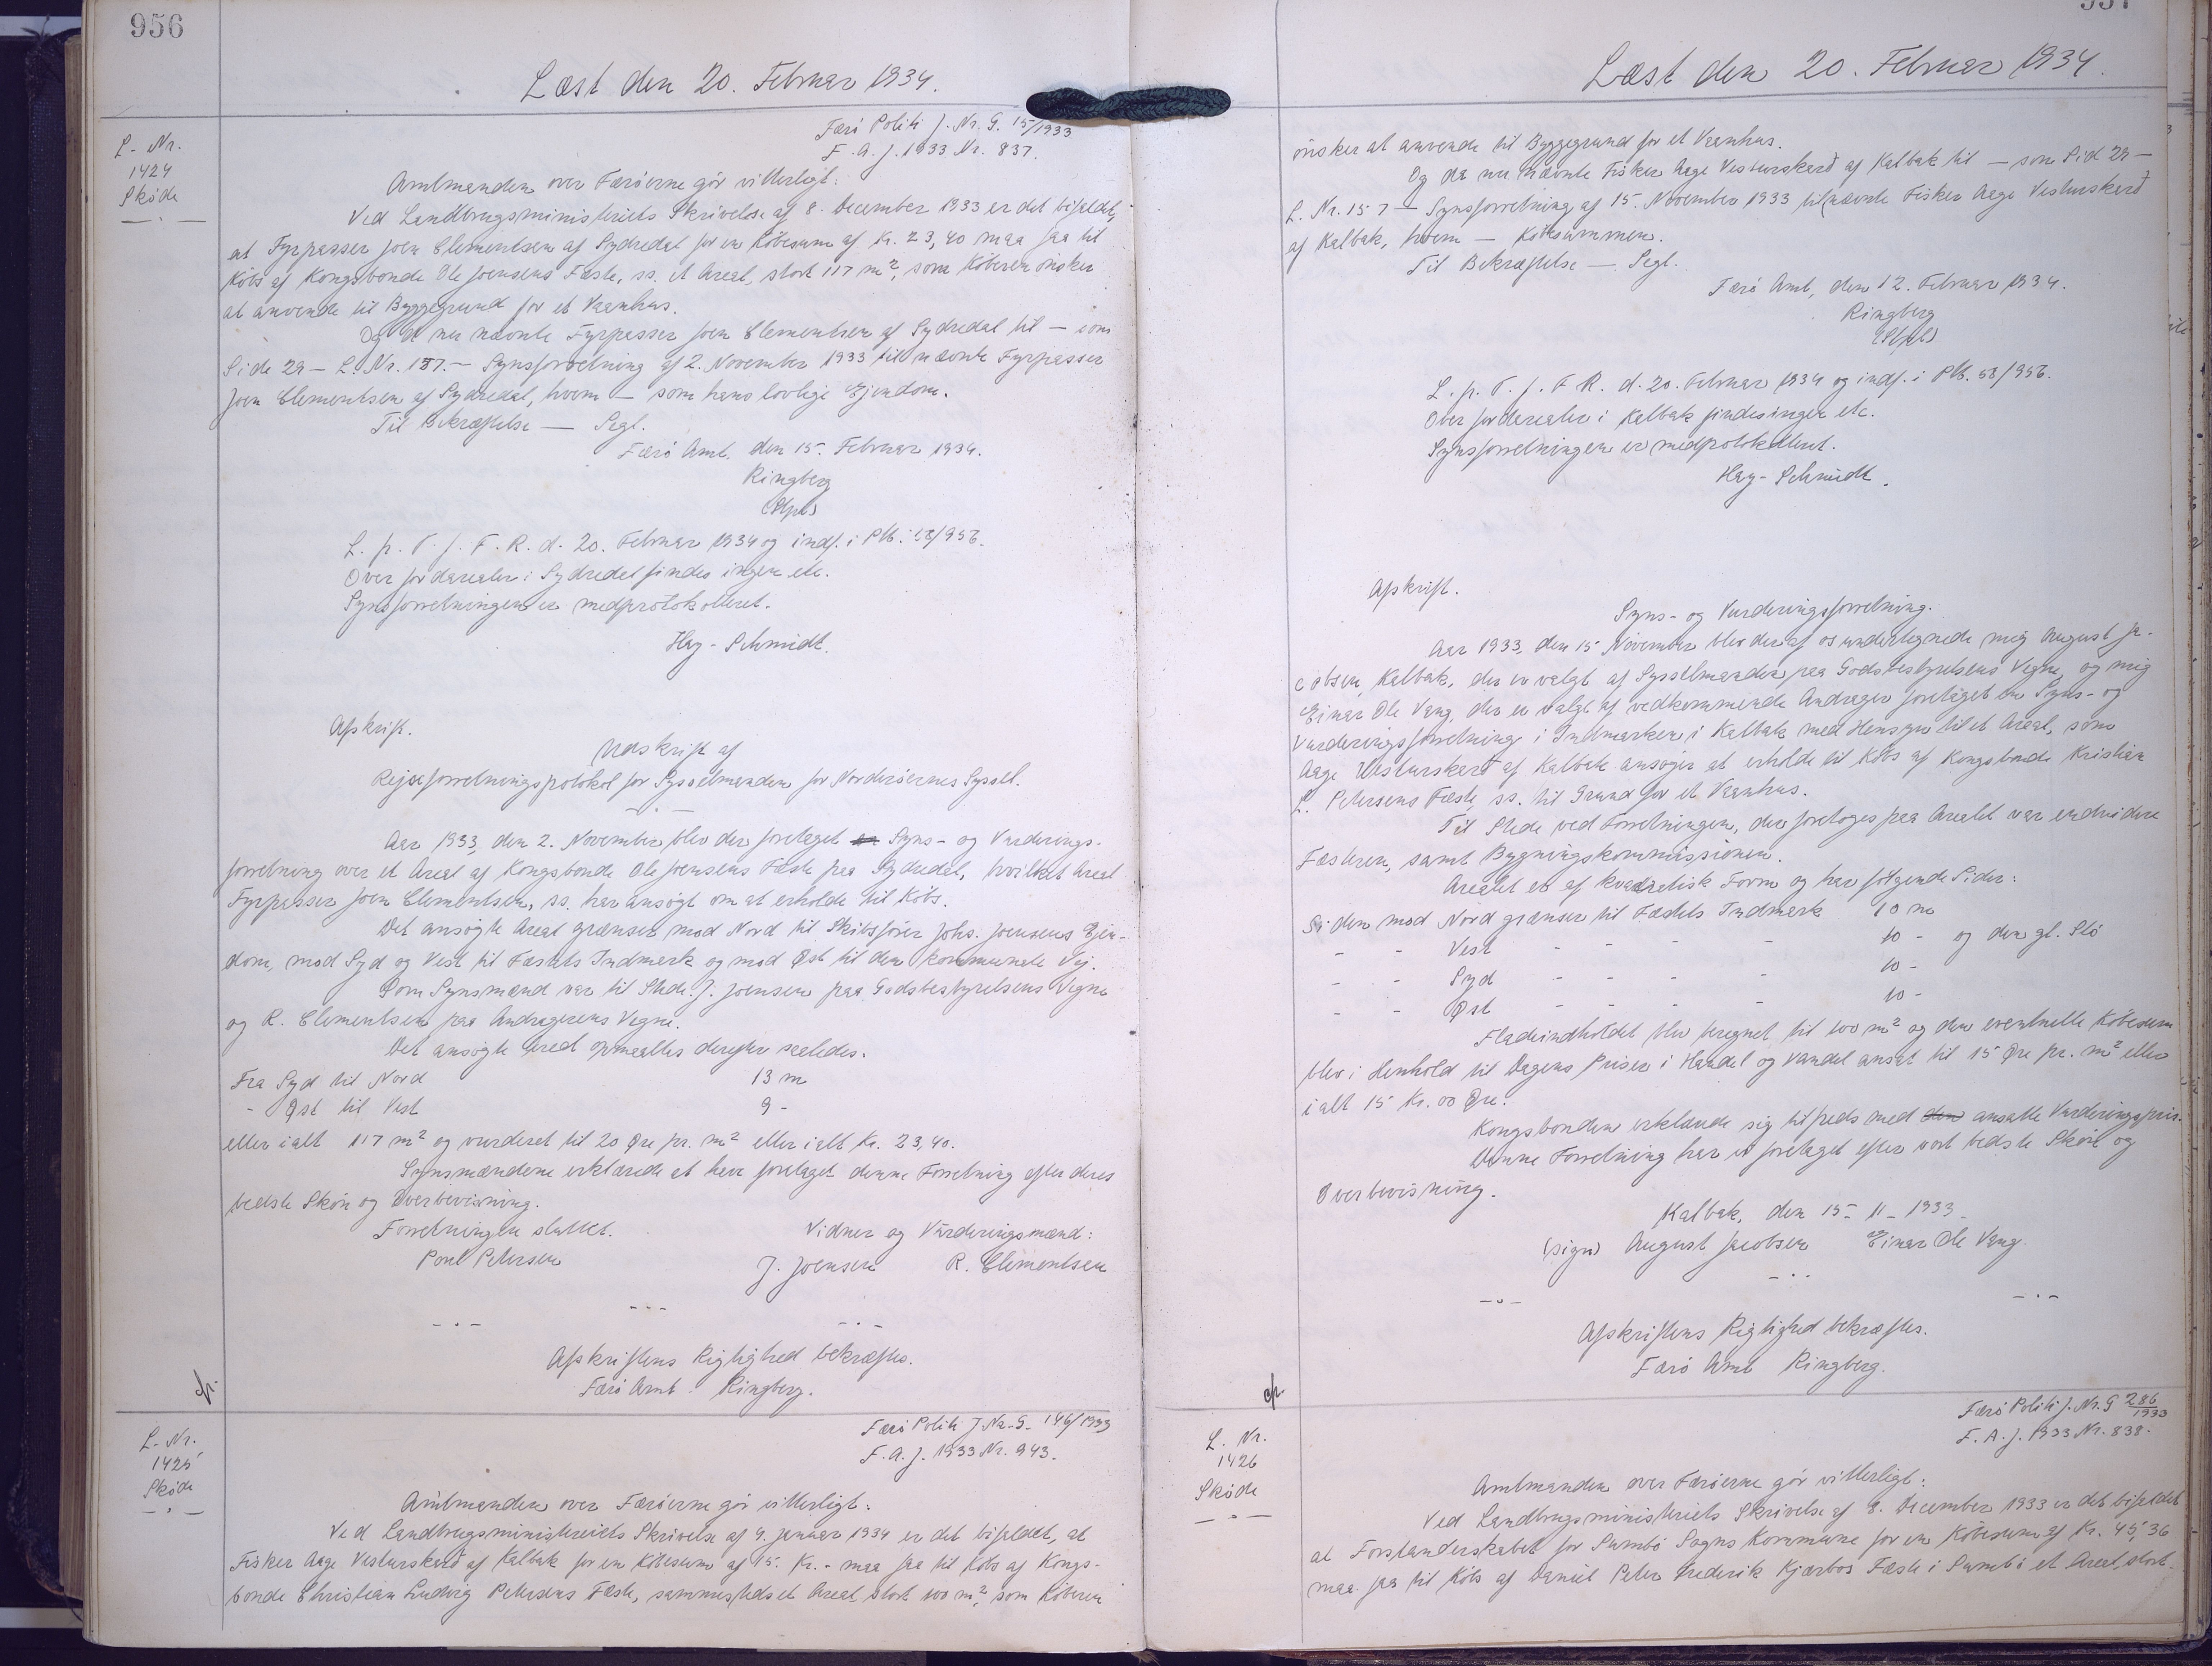 956
Læst den 20. Februar 1934.
L. Nr.
1424
Skøde
Færø Politi J. Nr. G. 15/1933
F. A. J. 1933 Nr. 837.
Amtmanden over Færøerne gör vitterligt:
Ved Landbrugsministeriets Skrivelse af 8. December 1933 er det bifaldet,
at Fyrpasser Joen Clementsen af Sydredal for en Købesum af Kr. 23,40 maa faa til
Købs af Kongsbonde Ole Joensens Fæste, ss. et Areal, stort 117 m², som Køberen ønsker
at anvende til Byggegrund for et Vaanhus.
Og da nu nævnte Fyrpasser Joen Clementsen af Sydredal til — som
Side 29 — L. Nr. 157. — Synsforretning af 2. November 1933 til nævnte Fyrpasser
Joen Clementsen af Sydredal, hvem — som hans lovlige Ejendom.
Til Bekræftelse — Segl.
Færö Amt, den 15. Februar 1934.
Ringberg
L. p. T. f. F. R. d. 20. Februar 1934 og indf. i Ptb. 58/956.
Over fordarealer i Sydredal findes ingen etc.
Synsforretningen er medprotokolleret.
Hay-Schmidt.
Afskrift.
Udskrift af
Rejseforretningsprotokol for Sysselmanden for Norderöernes Syssel.
Aar 1933, den 2. November blev der foretaget en Syns- og Vurderings-
forretning over et Areal af Kongsbonde Ole Joensens Fæste paa Sydredal, hvilket Areal
Fyrpasser Joen Clementsen, ss. har ansøgt om at erholde til Köbs.
Det ansøgte Areal grænser mod Nord til Skibsfører Johs. Joensens Ejen-
dom, mod Syd og Vest til Fæstets Indmark og mod Øst til den kommunale Vej.
Som Synsmænd var til Stede: J. Joensen paa Godsbestyrelsens Vegne
og R. Clementsen paa Andragerens Vegne.
Det ansøgte Areal opmaaltes derefter saaledes.
Fra Syd til Nord 13 m
- Øst til Vest 9 -
eller ialt 117 m² og vurderet til 20 Øre pr. m² eller ialt Kr. 23,40.
Synsmændene erklærede at have foretaget denne Forretning efter deres
bedste Skön og Overbevisning.
Forretningen sluttet. Vidner og Vurderingsmænd:
Poul Petersen J. Joensen R. Clementsen
Afskriftens Rigtighed bekræftes.
Færö Amt. Ringberg.
L. Nr.
1425
Skøde
Færö Politi J. Nr. G. 146/1933
F. A. J. 1933 Nr. 943.
Amtmanden over Færöerne gör vitterligt:
Ved Landbrugsministeriets Skrivelse af 9. Januar 1934 er det bifaldet, at
Fisker Aage Vesturskarð af Kalbak for en Købesum af 15. Kr. - maa faa til Købs af Kongs-
bonde Christian Ludvig Petersens Fæste, sammesteds et Areal, stort 100 m², som Køberen
957
Læst den 20. Februar 1934.
ønsker at anvende til Byggegrund for et Vaanhus.
Og da nu nævnte Fisker Aage Vesturskarð af Kalbak til — som Sid 29 —
L. Nr. 157 — Synsforretning af 15. November 1933 til nævnte Fisker Aage Vesturskarð
af Kalbak, hvem — Købesummen.
Til Bekræftelse — Segl.
Færö Amt, den 12. Februar 1934.
Ringberg
L. p. T. f. F. R. d. 20. Februar 1934 og indf. i Ptb. 58/956.
Over fordarealer i Kalbak findes ingen etc.
Synsforretningen er medprotokolleret.
Hay-Schmidt.
Afskrift.
Syns- og Vurderingsforretning.
Aar 1933, den 15 November blev der af os undertegnede mig August Ja-
cobsen, Kalbak, der er valgt af Sysselmanden paa Godsbestyrelsens Vegne, og mig
Einar Ole Vang, der er valgt af vedkommende Andrager foretaget en Syns- og
Vurderingsforretning i Indmarken i Kalbak med Hensyn til et Areal, som
Aage Vesturskarð af Kalbak ansøger at erholde til Köbs af Kongsbonde Kristian
L. Petersens Fæste, ss. til Grund for et Vaanhus.
Til Stede ved Forretningen, der foretoges paa Arealet var endvidere
Fæsteren, samt Bygningskommissionen.
Arealet er af kvadratisk Form og har fölgende Sider:
Siden mod Nord grænser til Fæstets Indmark 10 m
- - Vest - - - - 10 - og den gl. Slö
- - Syd - - - - 10 -
- - Øst - - - - 10 -
Fladeindholdet blev beregnet til 100 m² og den eventuelle Købesum
blev i Henhold til Dagens Priser i Handel og Vandel ansat til 15 Øre pr. m² eller
ialt 15 Kr. 00 Øre.
Kongsbonden erklærede sig tilfreds med den ansatte Vurderingspris.
Denne Forretning har vi foretaget efter vort bedste Skön og
Overbevisning.
Kalbak, den 15 - 11 - 1933
(sign) August Jacobsen Einar Ole Vang.
Afskriftens Rigtighed bekræftes.
Færö Amt Ringberg.
L. Nr.
1426
Skøde
Færö Politi J. Nr. G 286/1933
F. A. J. 1933 Nr. 838.
Amtmanden over Færöerne gör vitterligt:
Ved Landbrugsministeriets Skrivelse af 8. December 1933 er det bifaldet
at Forstanderskabet for Sumbö Sogns Kommune for en Købesum af Kr. 45,36
maa faa til Köbs af Daniel Peter Frederik Kjærbos Fæste i Sumbö et Areal, stort